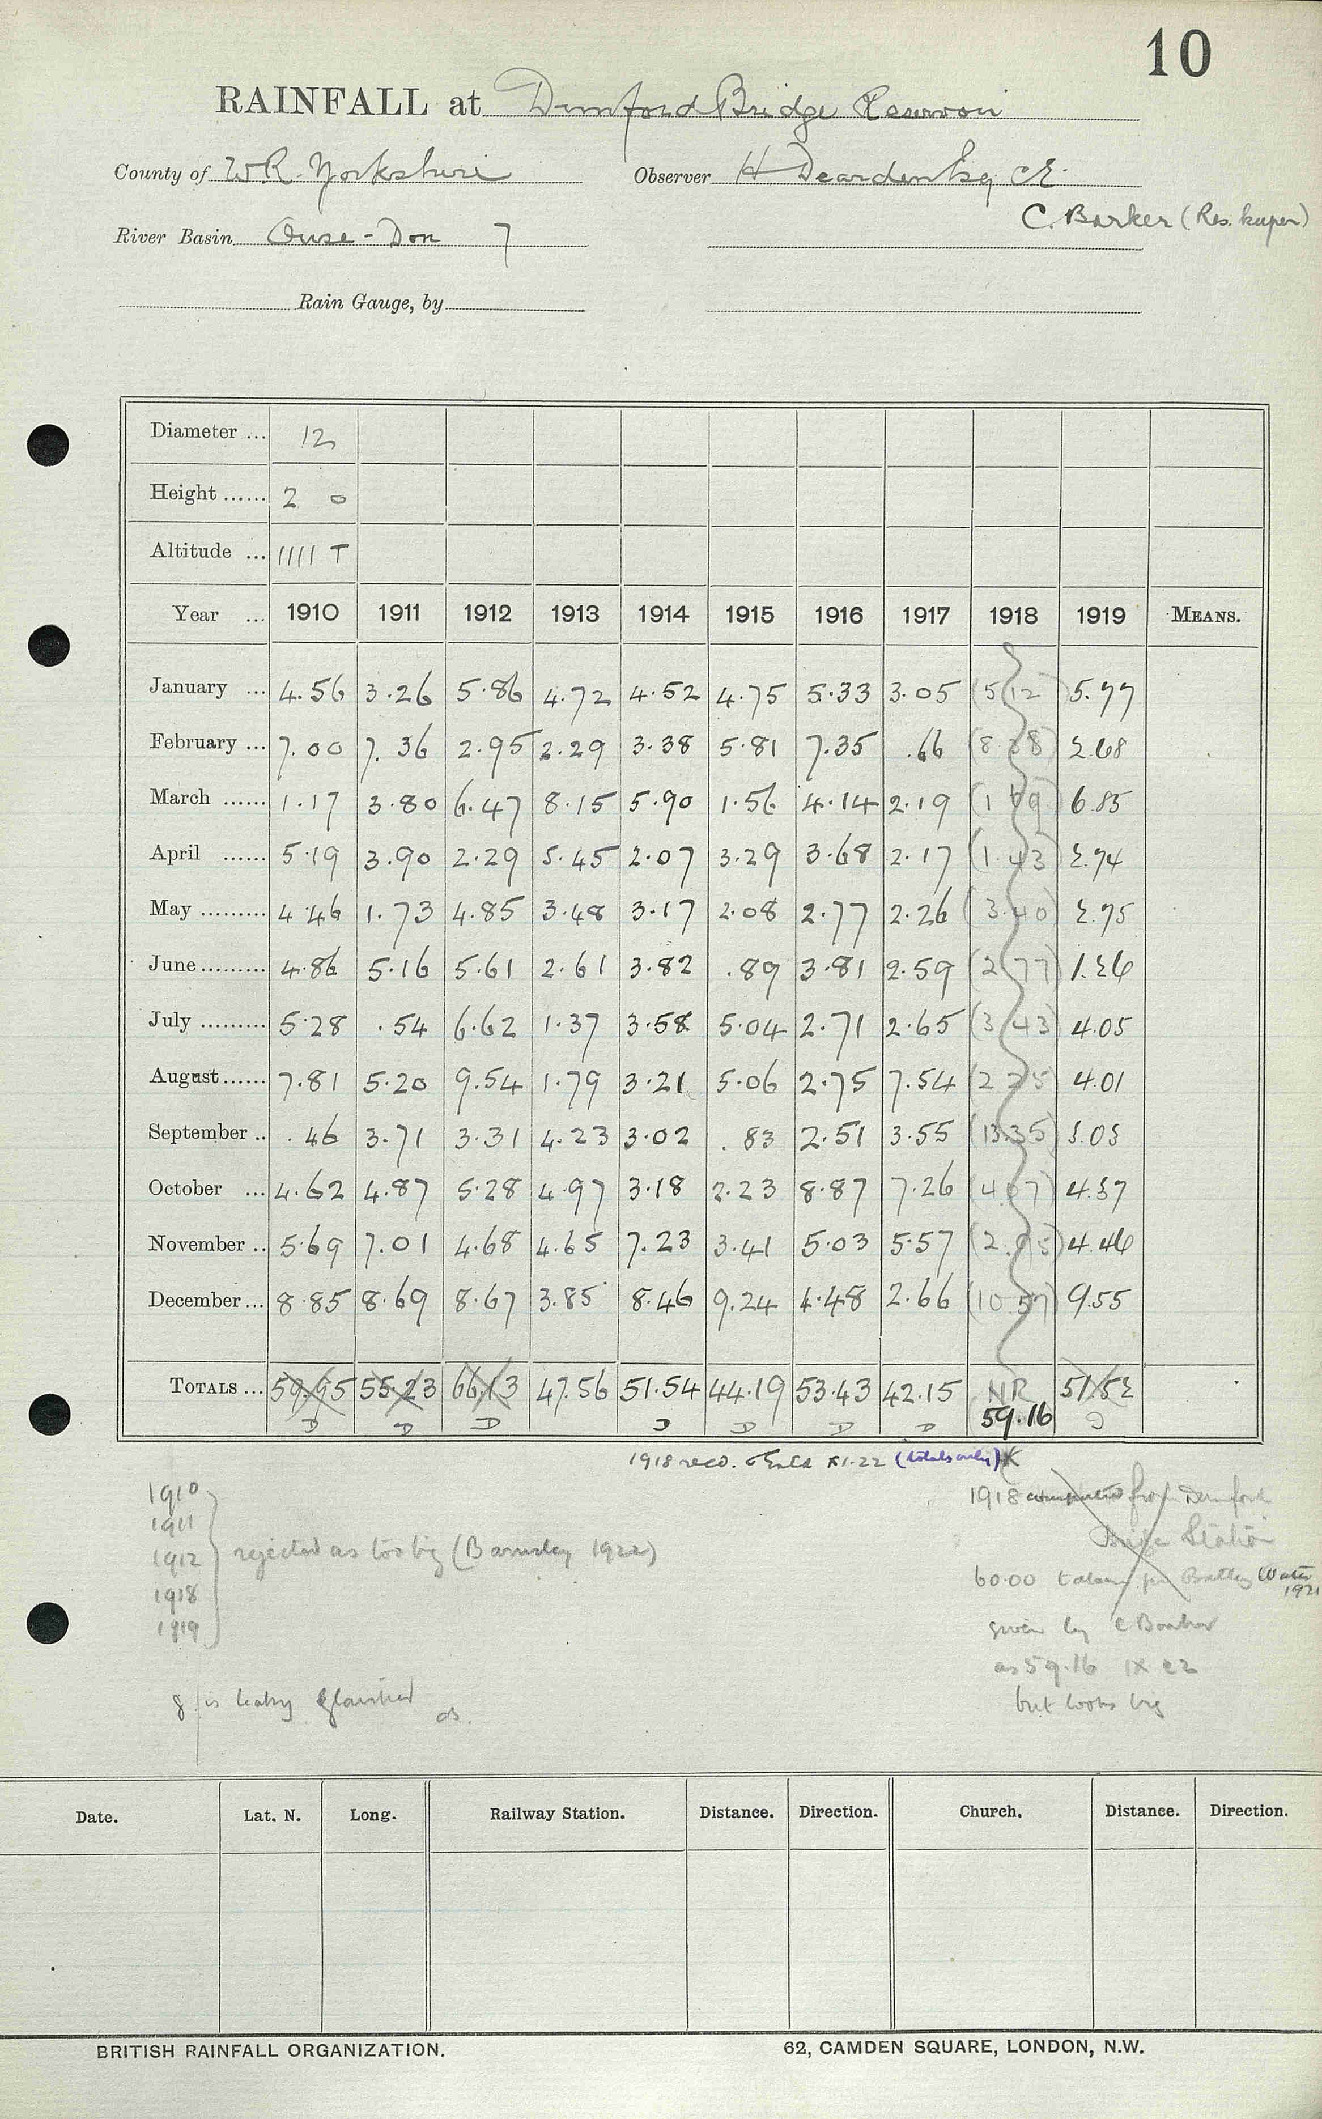 10
RAINFALL at Dunford Bridge Reservoir
County of W R Yorkshire Observer H Dearden Esq CE
C. Barker (Res. keeper)
River Basin Ouse - Don 7
Rain Gauge, by
Diameter ... 12
Height ...... 2 0
Altitude ... 1111 T
Year ... 1910 1911 1912 1913 1914 1915 1916 1917 1918 1919 MEANS.
January ... 4.56 3.26 5.86 4.72 4.52 4.75 5.33 3.05 (5 12) 5.77
February ... 7.00 7.36 2.95 2.29 3.38 5.81 7.35 .66 2.68
March ...... 1.17 3.80 6.47 8.15 5.90 1.56 4.14 2.19 6.85
April ...... 5.19 3.90 2.29 5.45 2.07 3.29 3.68 2.17 (1.43) 2.74
May ......... 4.46 1.73 4.85 3.48 3.17 2.08 2.77 2.26 (3.40) 2.75
June ......... 4.86 5.16 5.61 2.61 3.82 .89 3.81 2.59 (2 77) 1.26
July ......... 5.28 .54 6.62 1.37 3.58 5.04 2.71 2.65 (3 43) 4.05
August ...... 7.81 5.20 9.54 1.79 3.21 5.06 2.75 7.54 (2 25) 4.01
September .. .46 3.71 3.31 4.23 3.02 .83 2.51 3.55 (13.35) 3.03
October ... 4.62 4.87 5.28 4.97 3.18 2.23 8.87 7.26 4.37
November .. 5.69 7.01 4.68 4.65 7.23 3.41 5.03 5.57 (2.95) 4.46
December ... 8.85 8.69 8.67 3.85 8.46 9.24 4.48 2.66 (10.57) 9.55
TOTALS ... 59.95 55.23 66.13 47.56 51.54 44.19 53.43 42.15 NR 51.52
D D D D D D D 59.16 D
1918 recd. XI.22 (totals only)
1910
1911
1912 rejected as too big (Barnsley 1922)
1918
1919
1918 computed from Dunford
Bridge Station
60.00 taken for Batley Water 1921
given by C Barker
as 59.16 IX 22
but looks big
g is leaky
Date. Lat. N. Long. Railway Station. Distance. Direction. Church. Distance. Direction.
BRITISH RAINFALL ORGANIZATION. 62, CAMDEN SQUARE, LONDON, N.W.